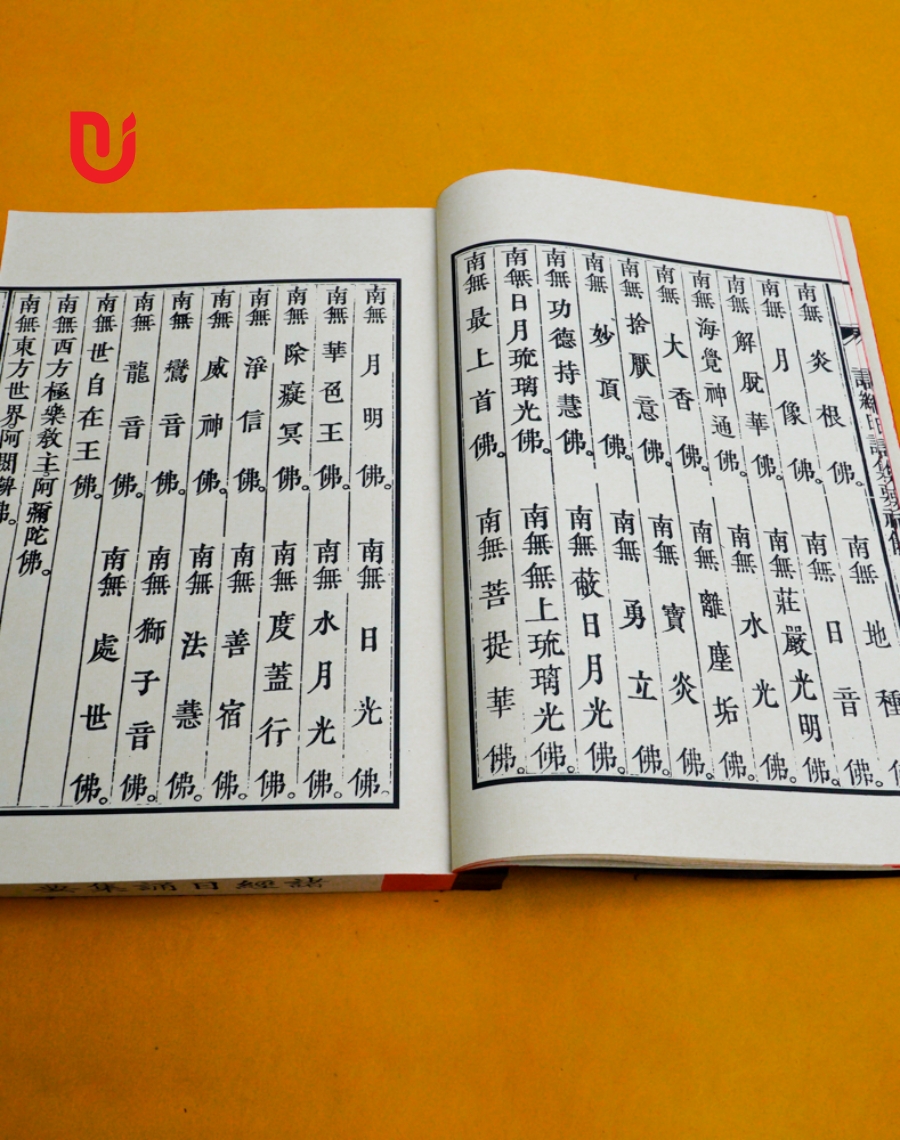 南無炎根佛。南無地種
南無月像佛。南無日音佛。
南無解脫華佛。南無莊嚴光明佛。
南無海覺神通佛。南無水光佛。
南無大香佛。南無離塵垢佛。
南無捨厭意佛。南無寶炎佛。
南無妙頂佛。南無勇立佛。
南無功德持慧佛。南無蔽日月光佛。
南無日月琉璃光佛。南無無上琉璃光佛。
南無最上首佛。南無菩提華佛。
南無月明佛。南無日光佛。
南無華色王佛。南無水月光佛。
南無除癡冥佛。南無度蓋行佛。
南無淨信佛。南無善宿佛。
南無威神佛。南無法慧佛。
南無鸞音佛。南無獅子音佛。
南無龍音佛。南無處世佛。
南無世自在王佛。
南無西方極樂教主阿彌陀佛。
南無東方世界阿閦鞞佛。
諸經日誦集要